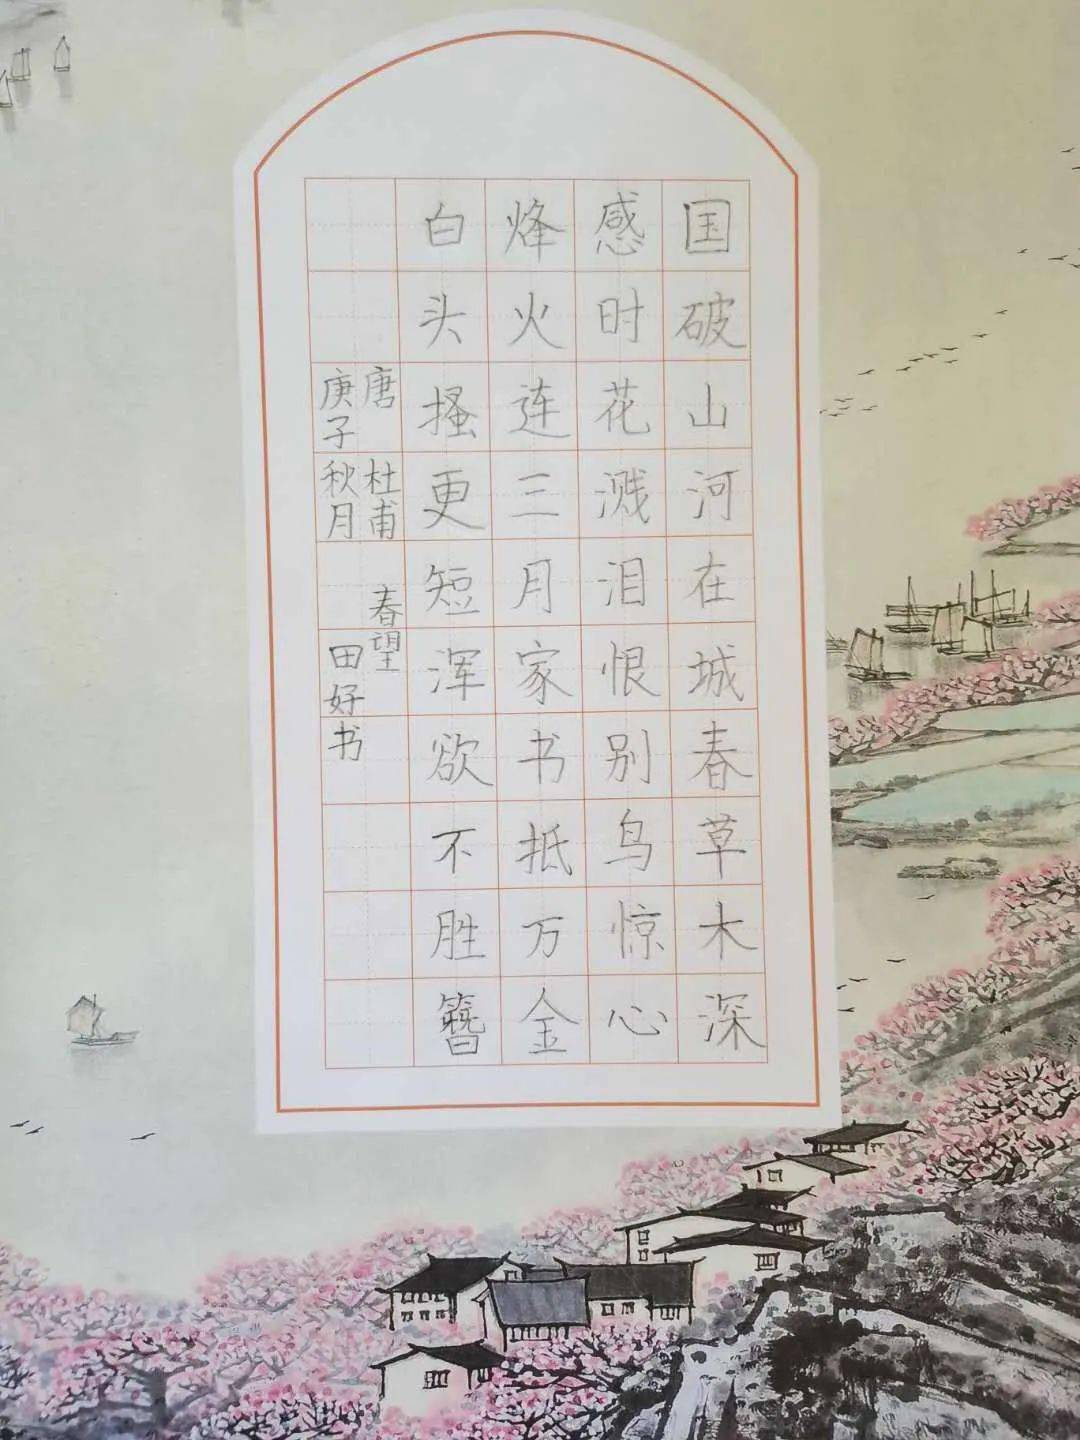 国破山河在城春草木深
感时花溅泪恨别鸟惊心
烽火连三月家书抵万金
白头搔更短浑欲不胜簪
唐 杜甫 春望
庚子秋月 田好书